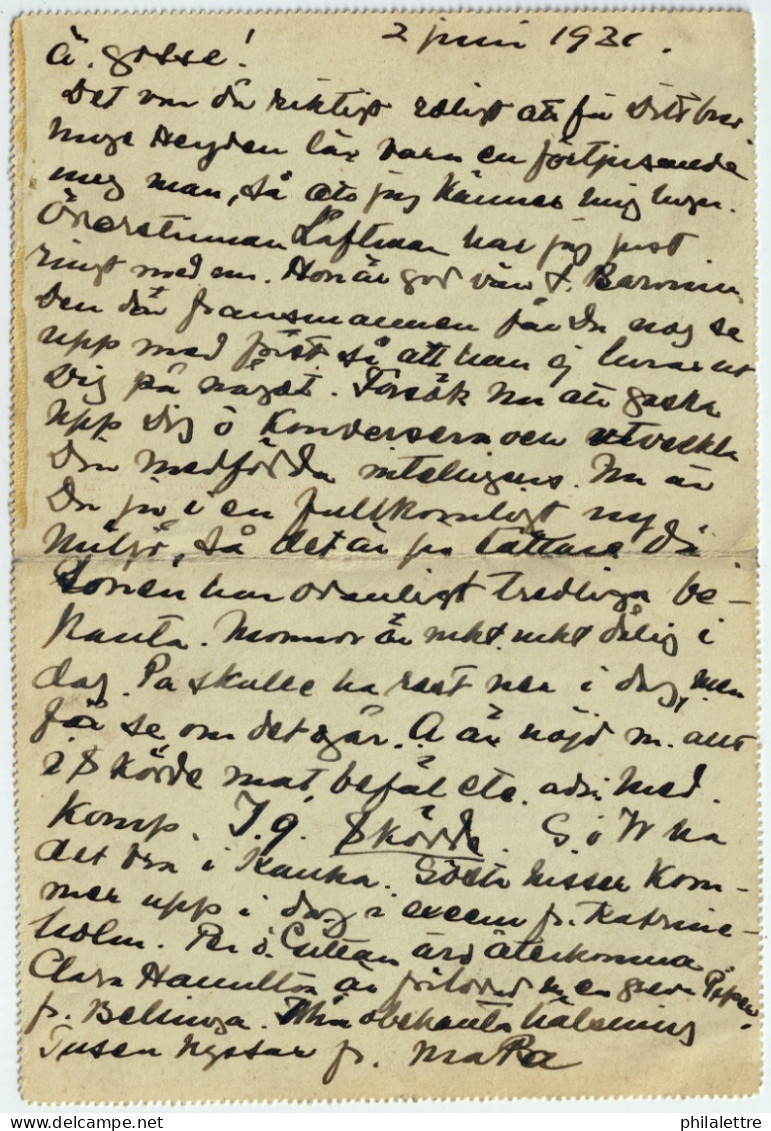 2 juni 1931.
Ä. gosse!
Det var då riktigt roligt att få Ditt brev.
Heyden lär vara en förtjusande
ung man, så att jag känner mig lugn.
Överstinnan Laftman har jag just
ringt med em. Hon är god vän t. Baronin
Den där fransmannen får Du nog se
upp med först så att han ej lurar ut
Dig på något. Försök nu att gaska
upp Dig o konversera och utveckla
Din medfödda intelligens. Nu är
Du ju i en fullkomligt ny
miljö, så det är ju lättare då
har ovanligt trevliga be-
kanta. Mormor är mkt mkt dålig i
dag. Pa skulle ha rest ner i dag, men
får se om det går. A är nöjd m. allt
i Skövde mat, befäl etc. adr. Med.
Komp. I.9. Skövde. G o W ha
det bra i Kauka. Gösta Kom-
mer upp i dag i fr. Katrine-
holm. Per o. äro återkomna
Clara Hamilton är förlovad m en greve Piper
fr. Min obekanta hälsning
Tusen kyssar fr. MaPa
philalettre